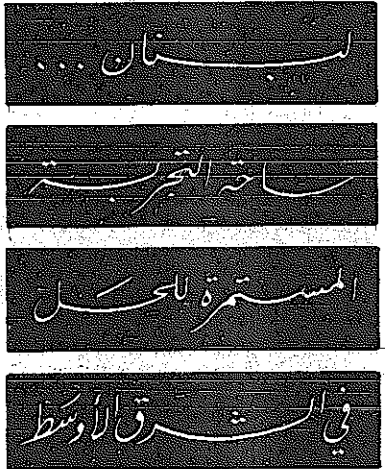 لبنان ...
ساحة التجربة
المستمرة للحل
في الشرق الأوسط